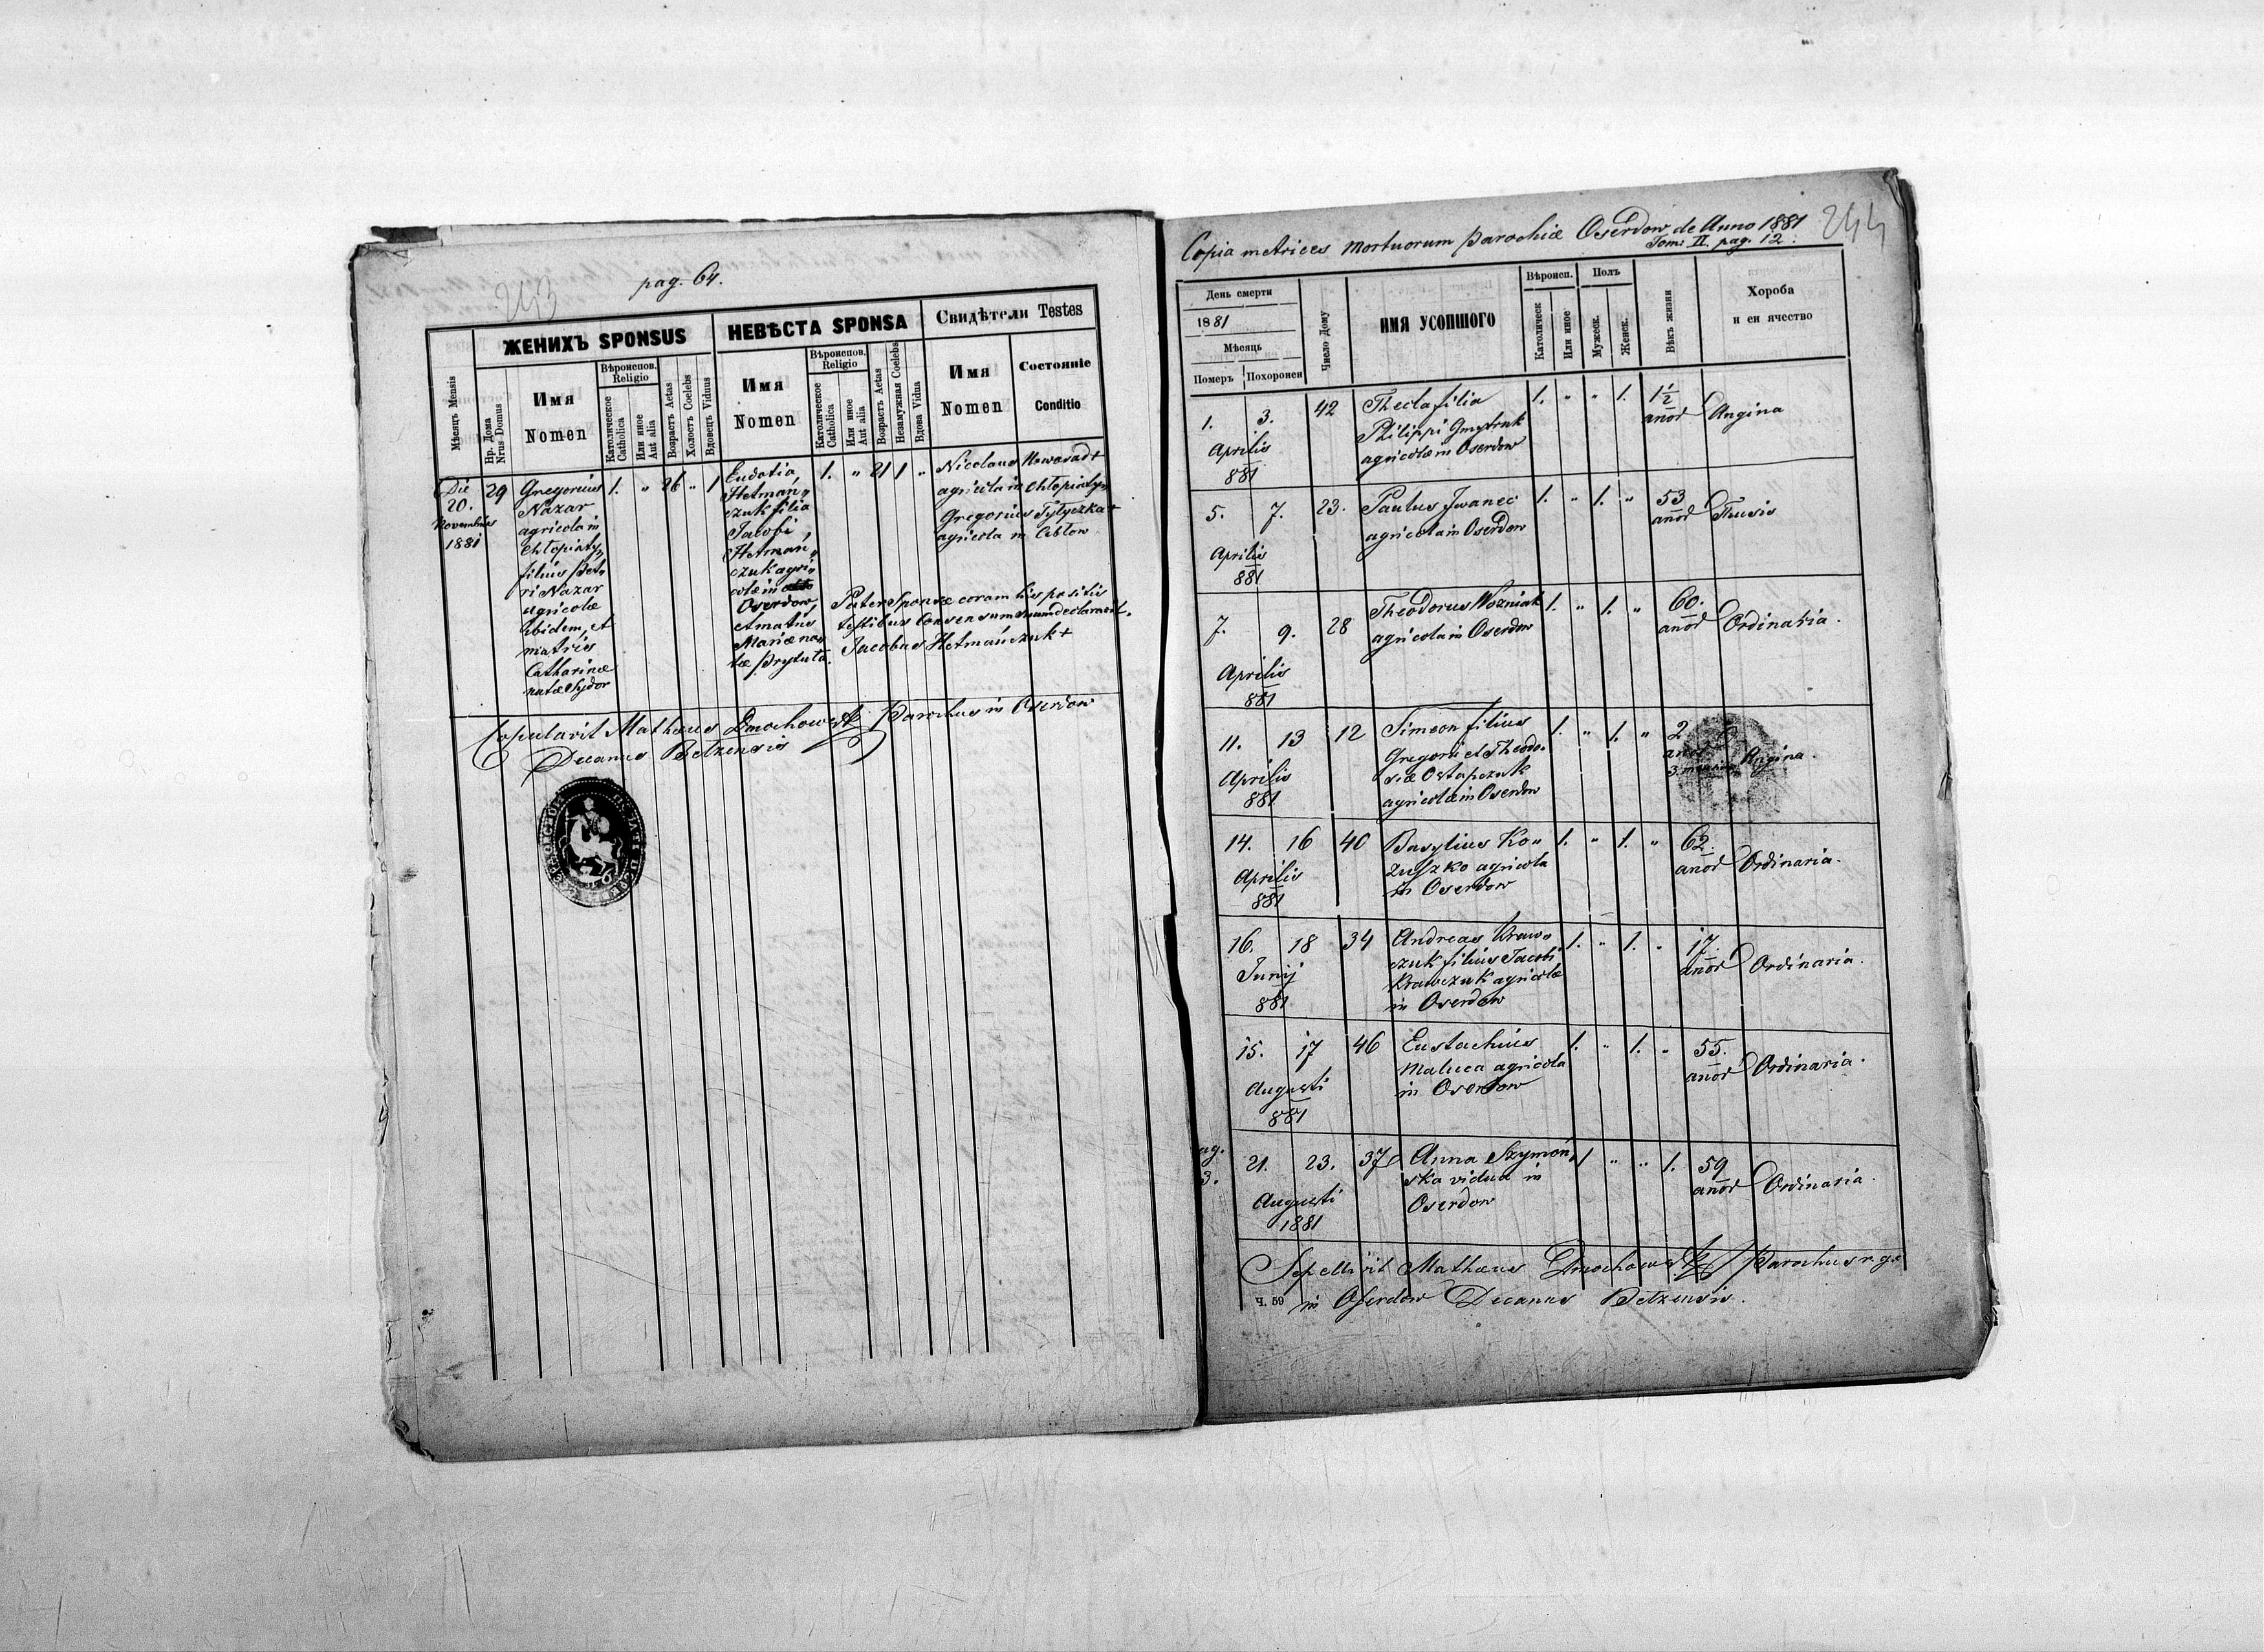 243
pag. 64.
ЖЕНИХЪ SPONSUS
НЕВѢСТА SPONSA
Свидѣтели Testes
Мѣсяць Mensis
Нр. Дома
Nrus Domus
Имя
Nomen
Вѣроиспов.
Religio
Католическое
Catholica
Или иное
Aut alia
Возрастъ Aetas
Холостъ Coelebs
Вдовецъ Viduus
Имя
Nomen
Вѣроиспов.
Religio
Католическое
Catholica
Или иное
Aut alia
Возрастъ Aetas
Незамужная Coelebs
Вдова Vidua
Имя
Nomen
Состояніе
Conditio
Die
20.
Novembris
1881
29
Gregorius
Nazar
agricola in
Chłopiaty„
filius Pet„
ri Nazar
agricolæ
ibidem, et
matris
Catharinæ
natæ Sydor
1. „ 26 „ 1
Eudotia,
Hetmań„
czuk filia
Jacobi
Hetmań„
czuk agri„
colæ in
Oserdow,
et matris
Mariæ na„
tæ Pryduta.
1. „ 21 1 „
Nicolaus Nowosad +
agricola in Chłopiaty„
Gregorius Tytyczka +
agricola in Cebłow
Pater Sponsæ coram his positis
testibus consensum suum declaravit.
Jacobus Hetmańczuk +
Copulavit Mathæus Dmochowski Parochus in Oserdow
Decanus Betzensis
244
Copia metrices Mortuorum Parochiæ Oserdow de Anno 1881
Tom: II. pag. 12.
День смерти
1881
Мѣсяць
Померъ Похоронен
Число Дому
ИМЯ УСОПШОГО
Вѣроисп.
Католическ
Или иное
Полъ
Мужеск.
Женск.
Вѣкъ жизни
Хороба
и еи ячество
1. 3. 42 Thecla filia 1. „ „ 1. 1½
Aprilis Philippi Gmytruk anor Angina
881 agricolæ in Oserdow
5. 7. 23. Paulus Iwanec 1. „ 1. „ 53
Aprilis agricola in Oserdow anor Thusis
881
7. 9. 28 Theodorus Wozniak 1. „ 1. „ 60.
Aprilis agricola in Oserdow anor Ordinaria.
881
11. 13 12 Simeon filius 1. „ 1. „ 2
Aprilis Gregorii et Theodo„ anor Angina.
881 siæ Ostapczuk
agricolæ in Oserdow
14. 16 40 Basylius Ko„ 1. „ 1. „ 62.
Aprilis żuszko agricola anor Ordinaria.
881 in Oserdow
16. 18 34 Andreas Kraw„ 1. „ 1. „ 17.
Junij czuk filius Jacobi anor Ordinaria.
881 Krawczuk agricolæ
in Oserdow
15. 17 46 Eustachius 1. „ 1. „ 55.
Augusti Maluca agricola anor Ordinaria.
881 in Oserdow
21. 23. 37 Anna Szymoń„ 1 „ „ 1. 59
Augusti ska vidua in anor Ordinaria.
1881 Oserdow
Sepellivit Mathæus Dmochowski Parochus r. g. c
Ч. 59 in Oserdow Decanus Betzensis.